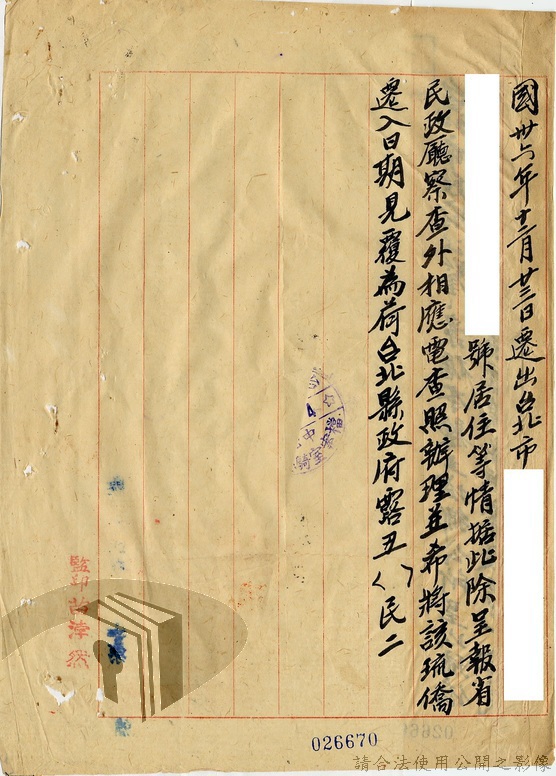 國卅六年十二月廿三日遷出台北市
號居住等情据此除呈報省
民政廳察查外相應電查照辦理並希將該琉僑
遷入日期見覆為荷台北縣政府露丑( )民二
監印
026670
請合法使用公開之影像